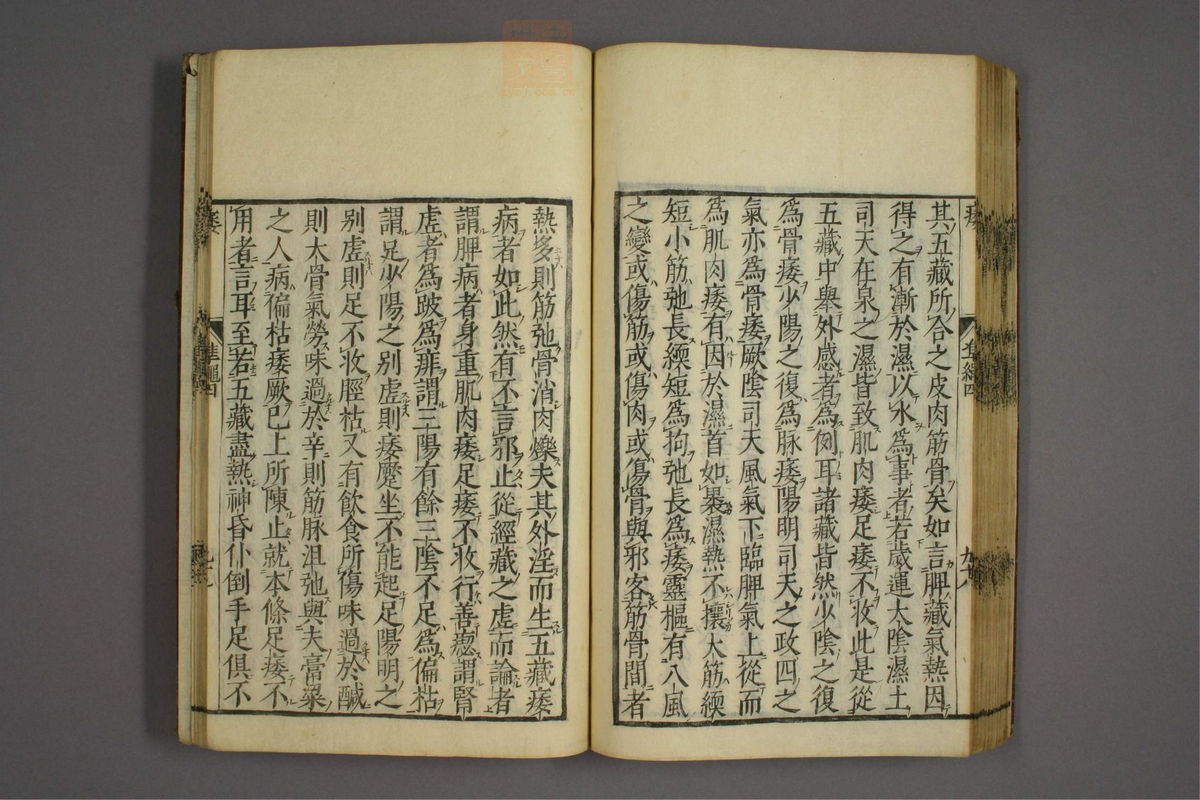 其五藏所合之皮肉筋骨矣如言脾藏氣熱因
得之有漸於濕以水爲事者若歲運太陰濕土
司天在泉之濕皆致肌肉痿足痿不收此是從
五藏中舉外感者爲例耳諸藏皆然少陰之復
爲骨痿少陽之復爲脉痿陽明司天之政四之
氣亦爲骨痿厥陰司天風氣下臨脾氣上從而
爲肌肉痿有因於濕首如裹濕熱不攘大筋緛
短小筋弛長緛短爲拘弛長爲痿靈樞有八風
之變或傷筋或傷肉或傷骨與邪客筋骨間者
熱多則筋弛骨消肉爍夫其外淫而生五藏痿
病者如此然有不言邪止從經藏之虛而論者
謂脾病者身重肌肉痿足痿不收行善瘛謂腎
虛者爲跛爲痱謂三陽有餘三陰不足爲偏枯
謂足少陽之别虛則痿躄坐不能起足陽明之
别虛則足不收脛枯又有飲食所傷味過於鹹
則大骨氣勞味過於辛則筋脉沮弛與夫膏粱
之人病偏枯痿厥已上所陳止就本條足痿不
用者言耳至若五藏盡熱神昏仆倒手足俱不